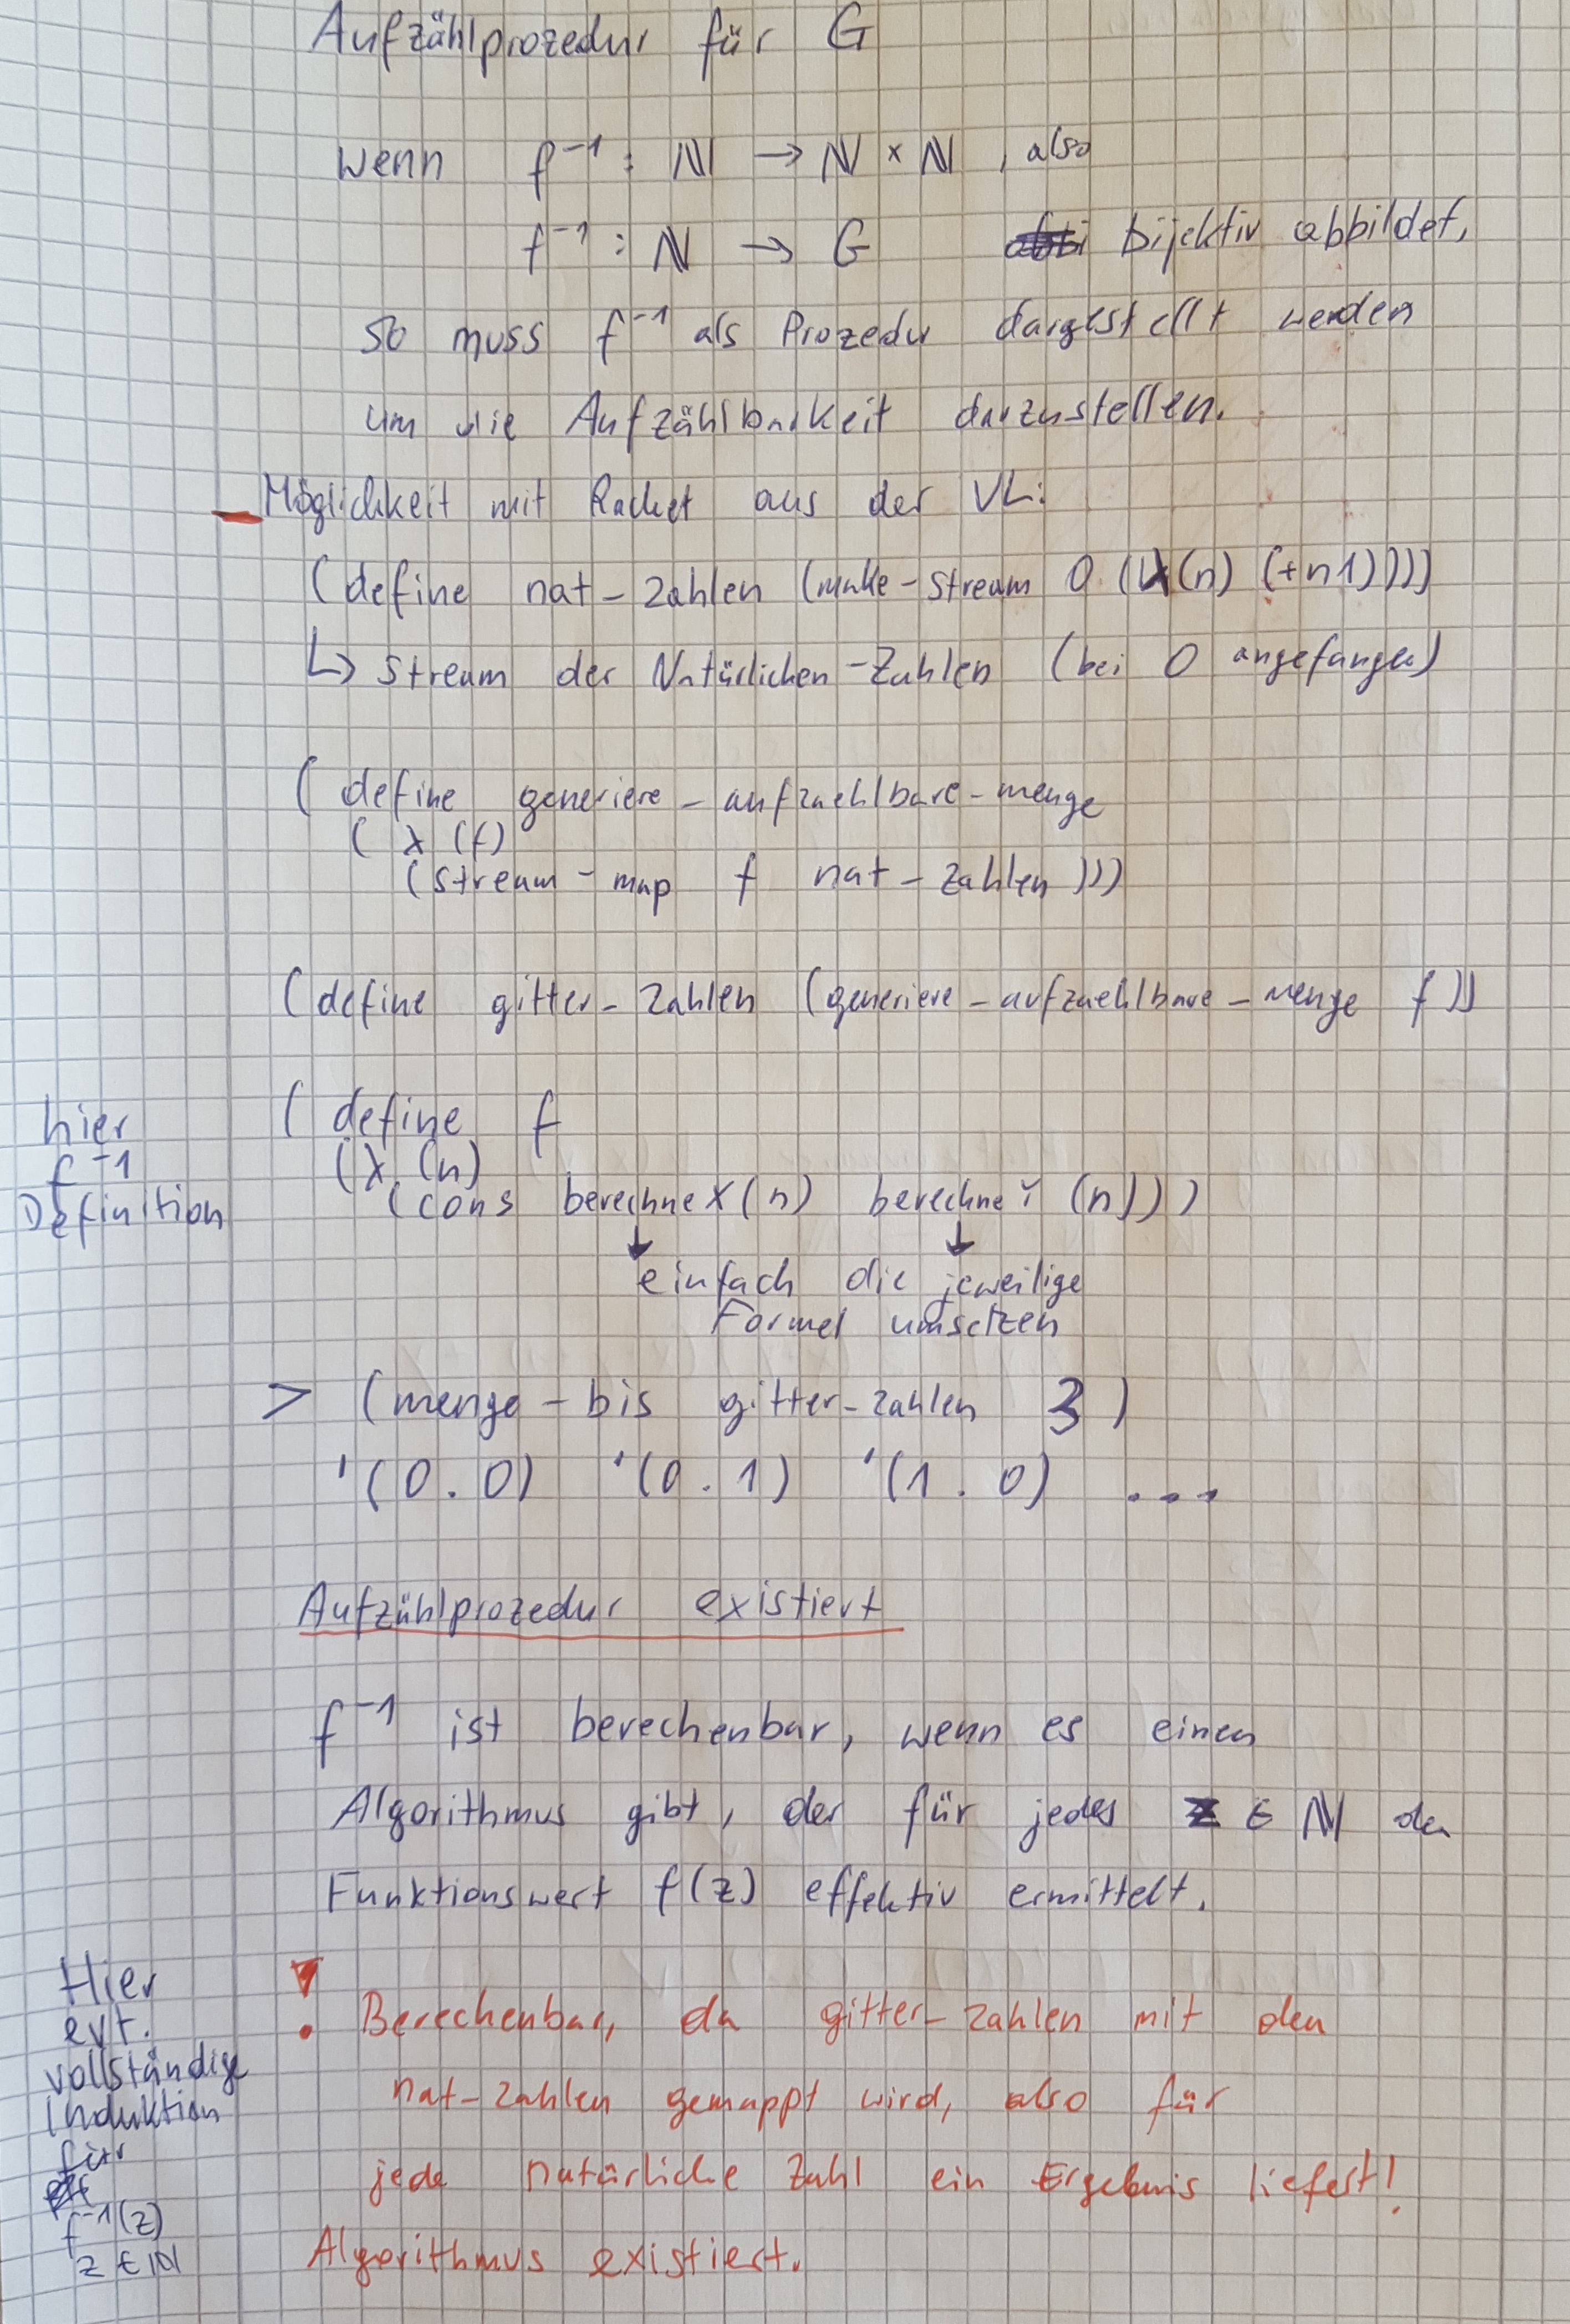 Aufzählprozedur für G
wenn f⁻¹ : ℕ → ℕ × ℕ , also
f⁻¹ : ℕ → G bijektiv abbildet,
so muss f⁻¹ als Prozedur dargestellt werden
um die Aufzählbarkeit darzustellen.
Möglichkeit mit Racket aus der VL:
(define nat-zahlen (make-stream 0 (λ(n) (+n1))))
↳ Stream der Natürlichen-Zahlen (bei 0 angefangen)
(define generiere-aufzaehlbare-menge
(λ (f)
(stream-map f nat-zahlen)))
(define gitter-zahlen (generiere-aufzaehlbare-menge f))
hier
f⁻¹
Definition
(define f
(λ (n)
(cons berechneX(n) berechneY (n)))
↓ ↓
einfach die jeweilige
Formel umsetzen
> (menge-bis gitter-zahlen 3)
'(0.0) '(0.1) '(1.0) ...
Aufzählprozedur existiert
f⁻¹ ist berechenbar, wenn es einen
Algorithmus gibt, der für jedes z ∈ ℕ den
Funktionswert f(z) effektiv ermittelt.
Hier
evt.
vollständige
Induktion
für
f⁻¹(z)
z ∈ ℕ
! Berechenbar, da gitter-zahlen mit den
nat-zahlen gemappt wird, also für
jede natürliche Zahl ein Ergebnis liefert!
Algorithmus existiert.